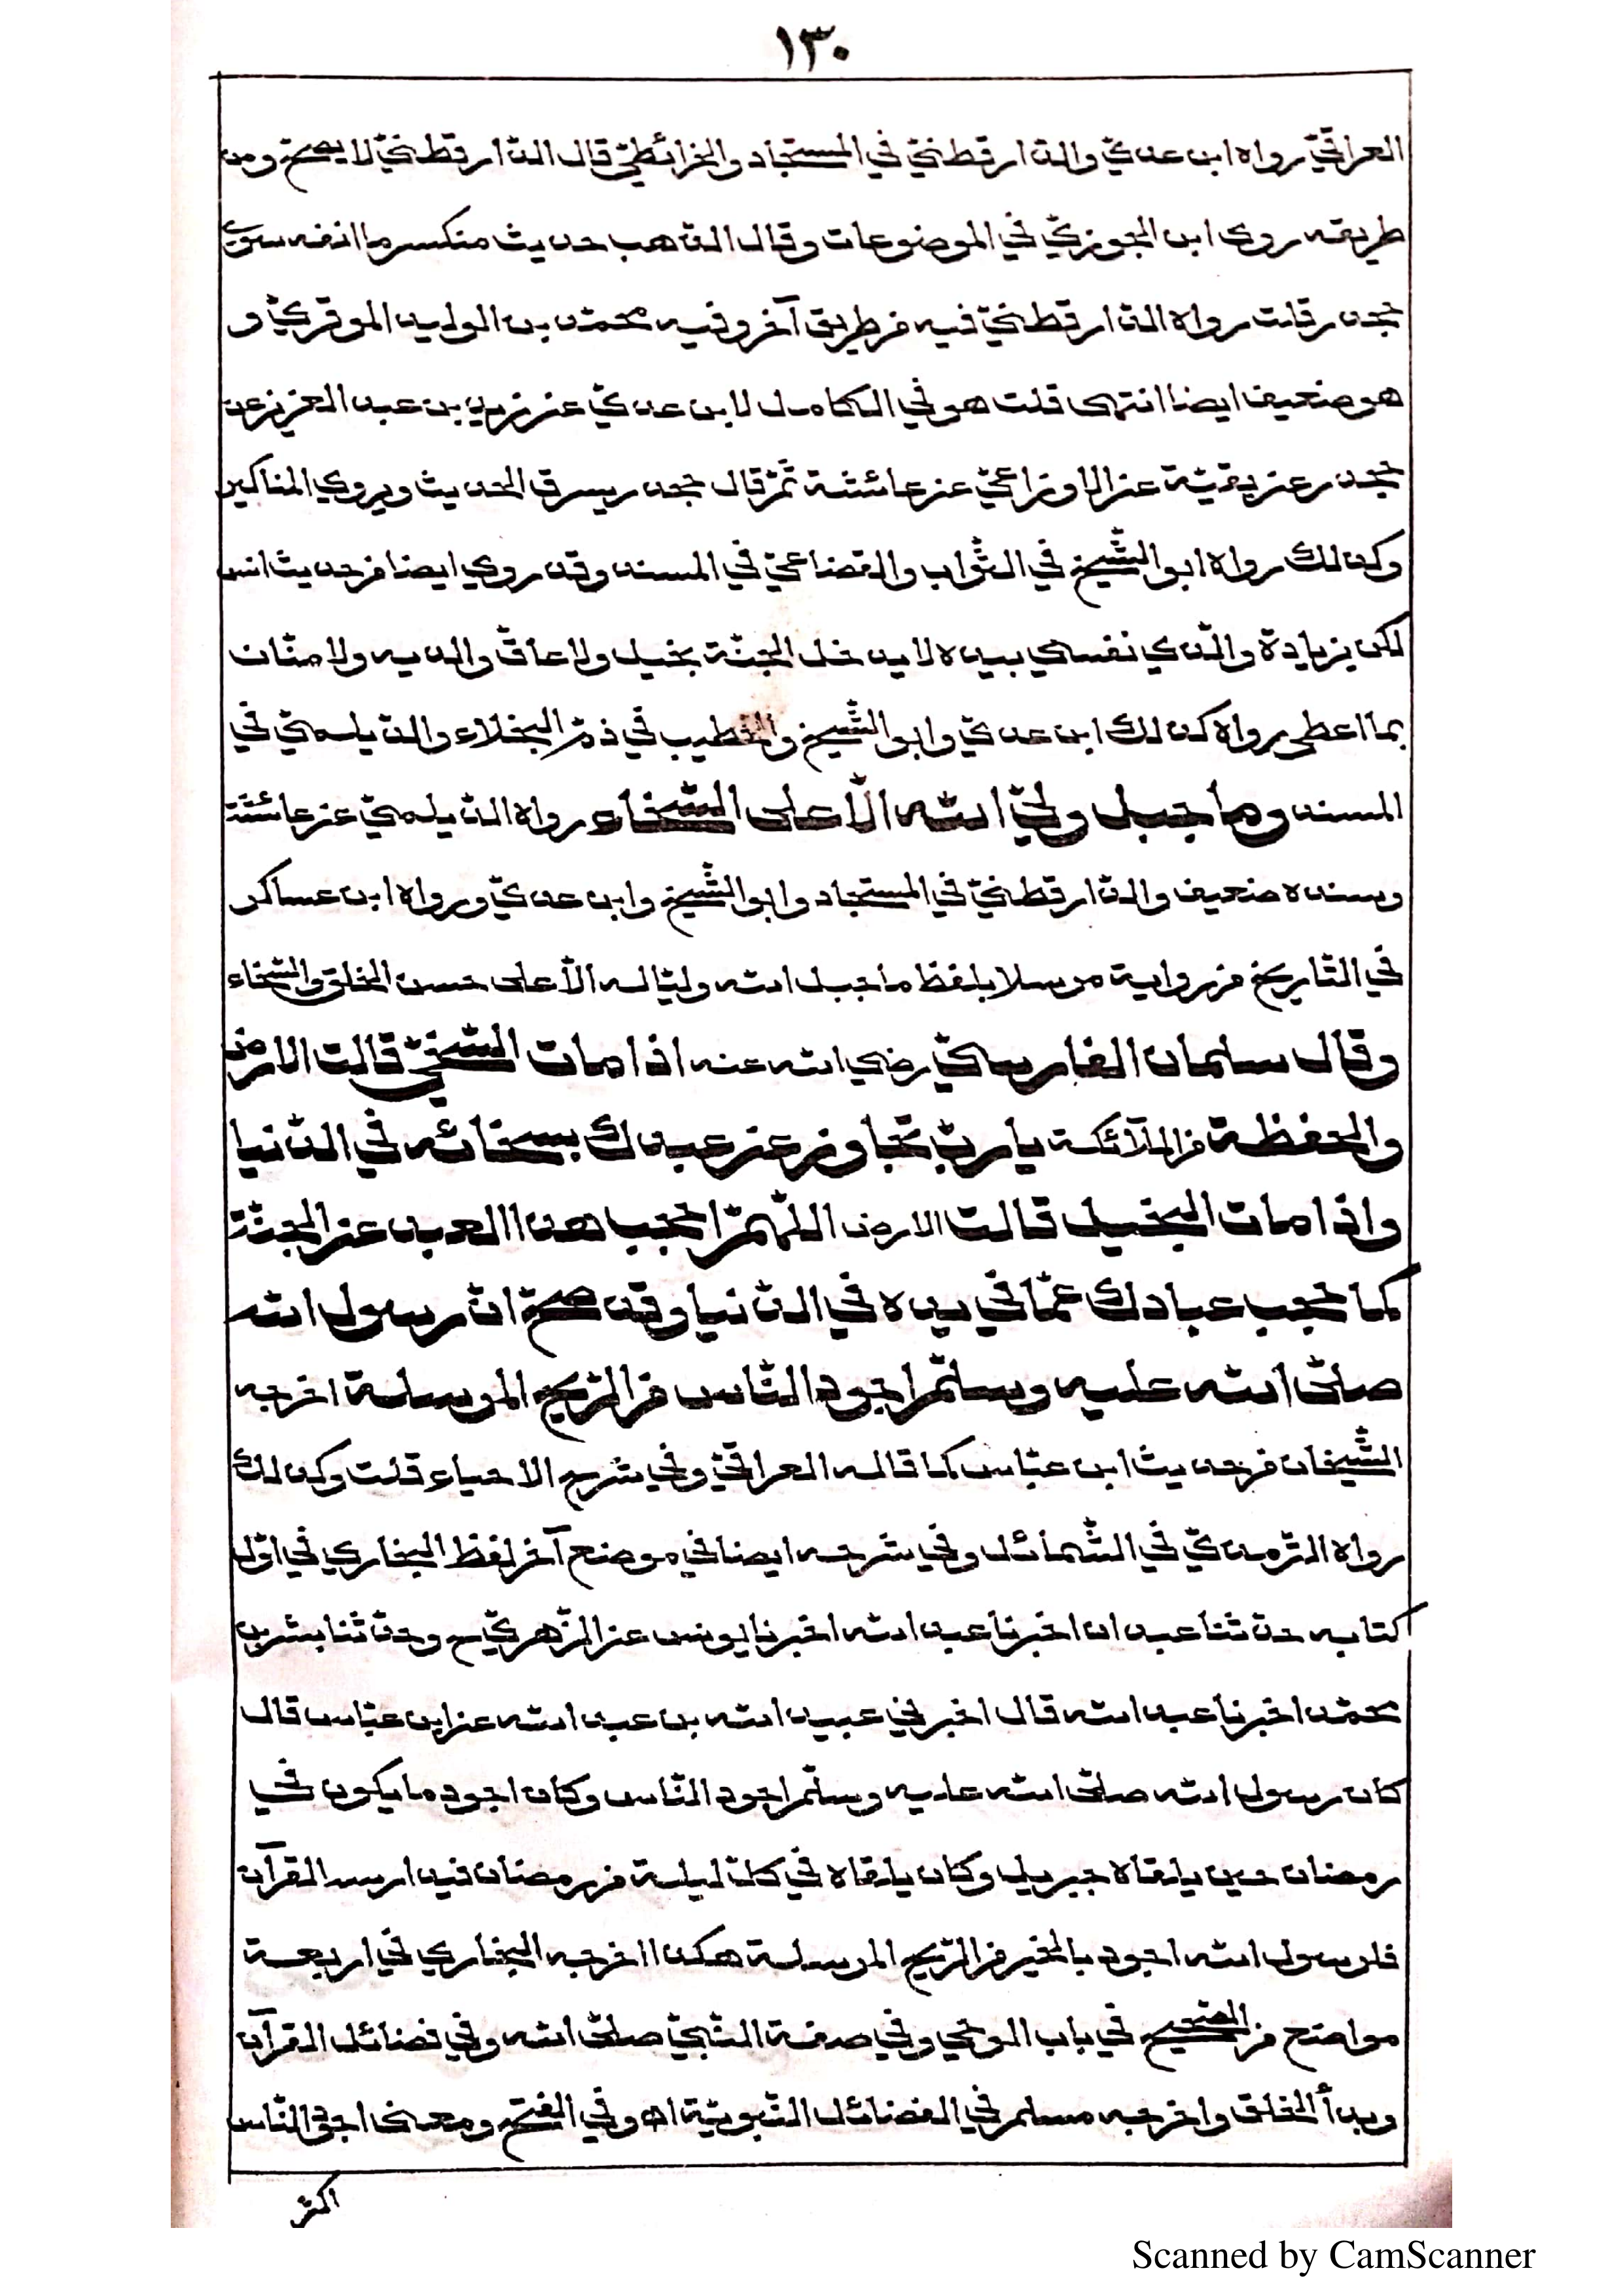 ١٣٠
العراقيّ رواه ابن عديّ والدّارقطنيّ في المستجاد والخرائطيّ قال الدّارقطنيّ لا يصحّ ومن
طريقه روى ابن الجوزيّ في الموضوعات وقال الذّهب حديث منكر ما آفته سوى
جحدر قلت رواه الدّارقطنيّ فيه من طريق آخر وفيه محمّد بن الوليد الموقريّ و
هو ضعيف ايضا انتهى قلت هو في الكامل لابن عديّ عن زيد بن عبد العزيز عن
جحدر عن بقيّة عن الاوزاعيّ عن عائشة ثمّ قال جحدر يسرق الحديث ويروي المناكير
وكذلك رواه ابو الشّيخ في الثّواب والقضاعيّ في المسند وقد روي ايضا من حديث انس
لكن بزيادة والّذي نفسي بيده لا يدخل الجنّة بخيل ولا عاقّ والديه ولا منّان
بما اعطى رواه كذلك ابن عديّ وابو الشّيخ والخطيب في ذمّ البخلاء والدّيلميّ في
المسند وما جبل وليّ الله الّا على السّخاء رواه الدّيلميّ عن عائشة
وسنده ضعيف والدّارقطنيّ في المستجاد وابو الشّيخ وابن عديّ ورواه ابن عساكر
في التّاريخ من رواية مرسلا بلفظ ما جبل الله وليّا له الّا على حسن الخلق والسّخاء
وقال سلمان الفارسيّ رضي الله عنه اذا مات السّخيّ قالت الارض
والحفظة من الملآئكة يا ربّ تجاوز عن عبدك بسخائه في الدّنيا
واذا مات البخيل قالت الارض اللّهمّ احجب هذا العبد عن الجنّة
كما حجب عبادك عمّا في يده في الدّنيا وقد صحّ انّ رسول الله
صلّى الله عليه وسلّم اجود النّاس من الرّيح المرسلة اخرجه
الشّيخان من حديث ابن عبّاس كما قاله العراقيّ وفي شرح الاحياء قلت وكذلك
رواه التّرمذيّ في الشّمائل وفي شرحه ايضا في موضع آخر لفظ البخاري في اوّل
كتابه حدّثنا عبدان اخبرنا عبد الله اخبرنا يونس عن الزّهريّ ح وحدّثنا بشر بن
محمّد اخبرنا عبد الله قال اخبرني عبيد الله بن عبد الله عن ابن عبّاس قال
كان رسول الله صلّى الله عليه وسلّم اجود النّاس وكان اجود ما يكون في
رمضان حين يلقاه جبريل وكان يلقاه في كلّ ليلة من رمضان فيدارسه القرآن
فلرسول الله اجود بالخير من الرّيح المرسلة هكذا اخرجه البخاري في اربعة
مواضع من الصّحيح في باب الوحي وفي صفة النّبيّ صلّى الله وفي فضائل القرآن
وبدأ الخلق واخرجه مسلم في الفضائل النّبويّة اه وفي الفتح ومعنى اجود النّاس
اكثر
Scanned by CamScanner